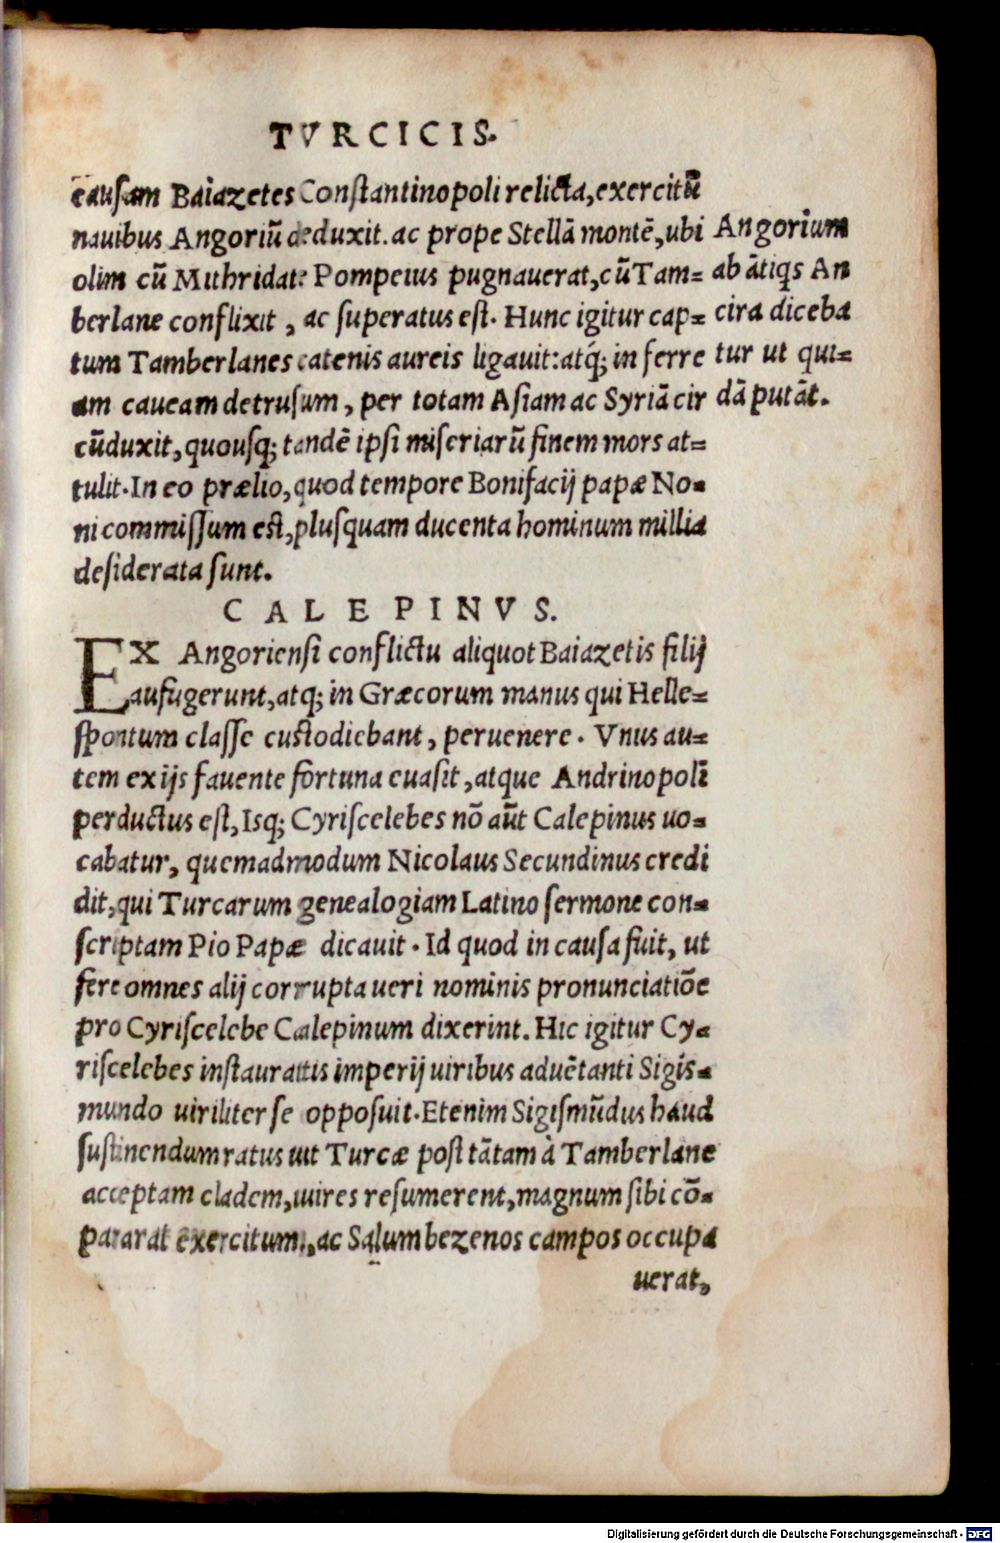 TVRCICIS.
causam Baiazetes Constantinopoli relicta, exercitū
nauibus Angoriū deduxit. ac prope Stellā montē, ubi
olim cū Mithridate Pompeius pugnauerat, cū Tam=
berlane conflixit, ac superatus est. Hunc igitur cap=
tum Tamberlanes catenis aureis ligauit: atq́; in ferre
am caueam detrusum, per totam Asiam ac Syriā cir
cūduxit, quousq; tandē ipsi miseriarū finem mors at=
tulit. In eo prælio, quod tempore Bonifacij papæ No=
ni commissum est, plusquam ducenta hominum millia
desiderata sunt.
Angorium
ab ātiqs An
cira diceba
tur ut qui=
dā putāt.
CALEPINVS.
EX Angoriensi conflictu aliquot Baiazetis filij
aufugerunt, atq; in Græcorum manus qui Helle=
spontum classe custodiebant, peruenere. Vnus au=
tem ex ijs fauente fortuna euasit, atque Andrinopolī
perductus est, Isq; Cyriscelebes nō aūt Calepinus uo=
cabatur, quemadmodum Nicolaus Secundinus credi
dit, qui Turcarum genealogiam Latino sermone con=
scriptam Pio Papæ dicauit. Id quod in causa fuit, ut
fere omnes alij corrupta ueri nominis pronunciatiōe
pro Cyriscelebe Calepinum dixerint. Hic igitur Cy=
riscelebes instauratis imperij uiribus aduētanti Sigis=
mundo uiriliter se opposuit. Etenim Sigismūdus haud
sustinendum ratus uti Turcæ post tātam à Tamberlane
acceptam cladem, uires resumerent, magnum sibi cō=
pararat exercitum, ac Salumbezenos campos occupa
uerat,
Digitalisierung gefördert durch die Deutsche Forschungsgemeinschaft - DFG